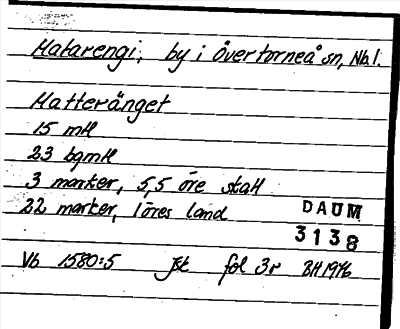 Matarengi, by i Övertorneå sn, Nbl.
Matteränget
15 mtl
23 bgmtl
3 marker, 5,5 öre skatt
22 marker, 1 öres land
DAUM
3138
Vb 1580:5 Jb fol 3r BH 1976